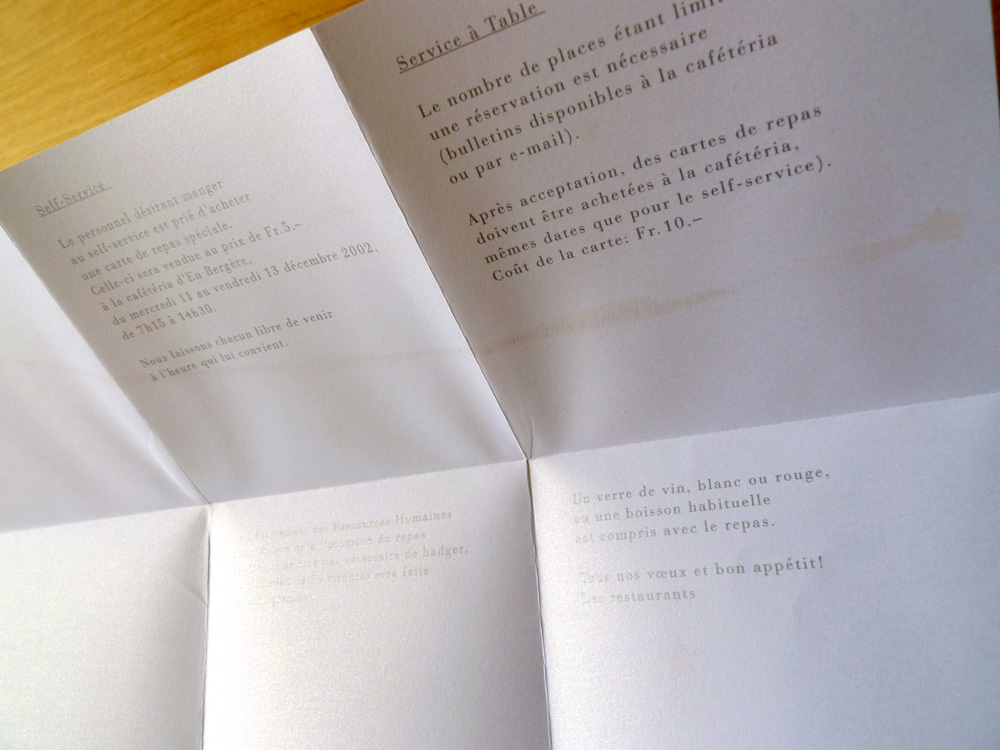 Self-Service
Le personnel désirant manger
au self-service est prié d'acheter
une carte de repas spéciale.
Celle-ci sera vendue au prix de Fr.5.–
à la cafétéria d'En Bergère,
du mercredi 11 au vendredi 13 décembre 2002,
de 7h15 à 14h30.
Nous laissons chacun libre de venir
à l'heure qui lui convient.
Service à Table
Le nombre de places étant
une réservation est nécessaire
(bulletins disponibles à la cafétéria
ou par e-mail).
Après acceptation, des cartes de repas
doivent être achetées à la cafétéria,
mêmes dates que pour le self-service).
Coût de la carte: Fr.10.–
des Ressources Humaines
qu'à l'occasion du repas
pas nécessaire de badger.
sera faite
Un verre de vin, blanc ou rouge,
ou une boisson habituelle
est compris avec le repas.
Tous nos vœux et bon appétit!
Les restaurants